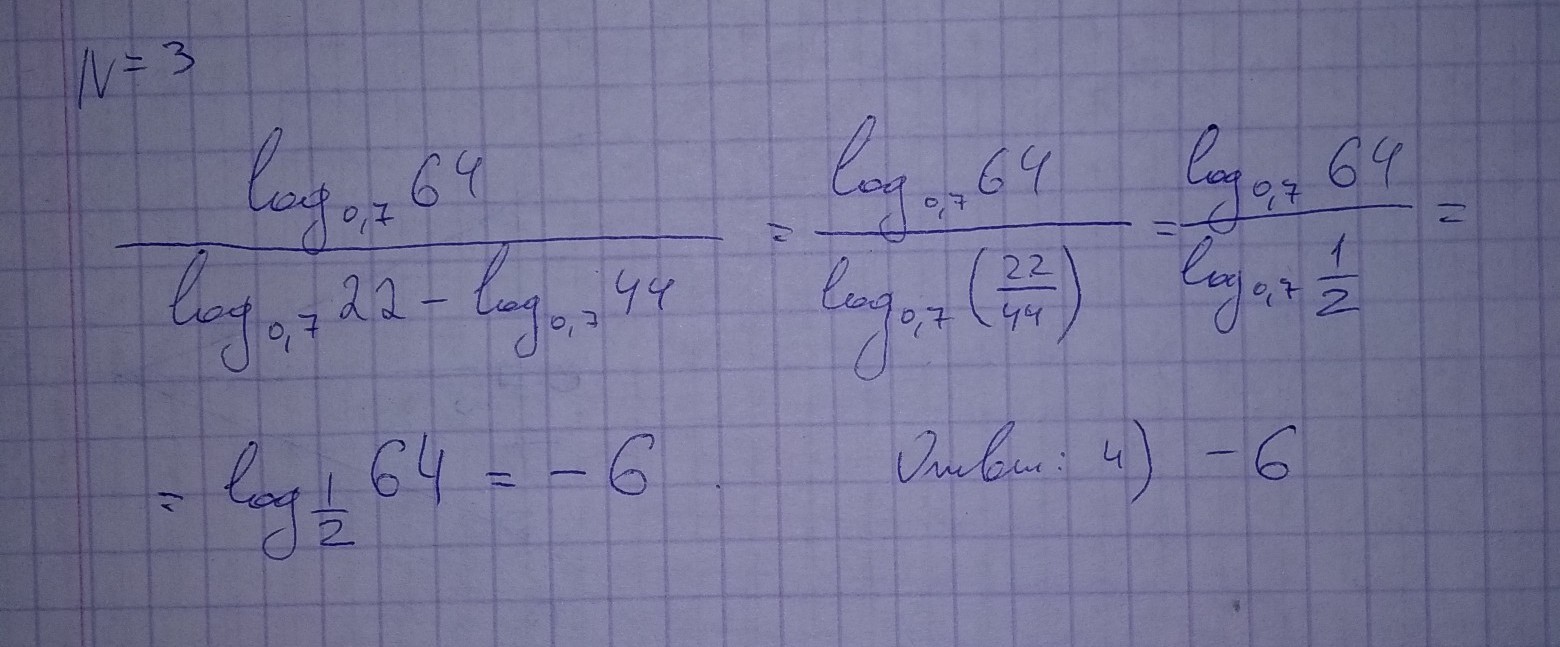 N = 3
log_{0,7} 64 / (log_{0,7} 22 - log_{0,7} 44) = log_{0,7} 64 / log_{0,7} (22/44) = log_{0,7} 64 / log_{0,7} 1/2 =
= log_{1/2} 64 = -6 . Ответ: 4) -6